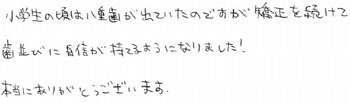 小学生の頃は八重歯が出ていたのですが矯正を続けて
歯並びに自信が持てるようになりました!
本当にありがとうございます.